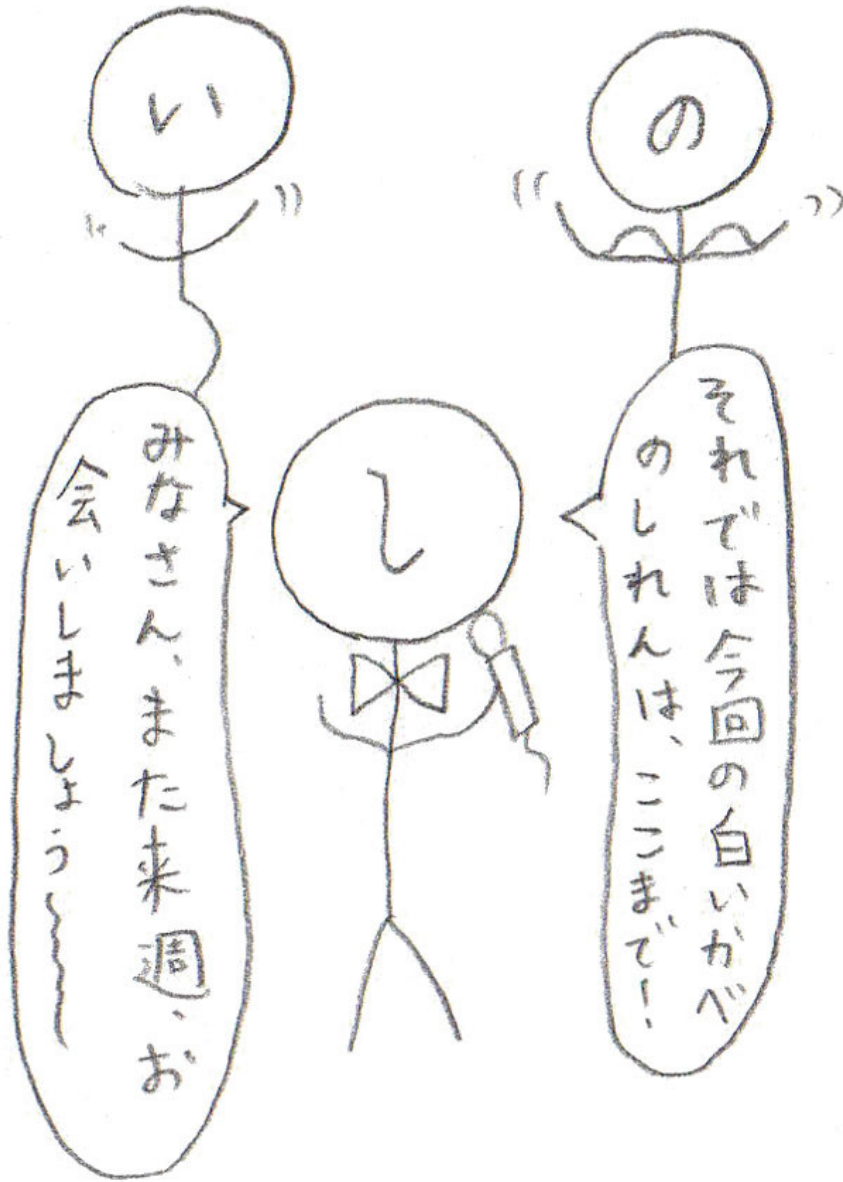 の
い
し
それでは今回の白いかべ
のしれんは、ここまで!
みなさん、また来週、お
会いしましょう〜〜〜